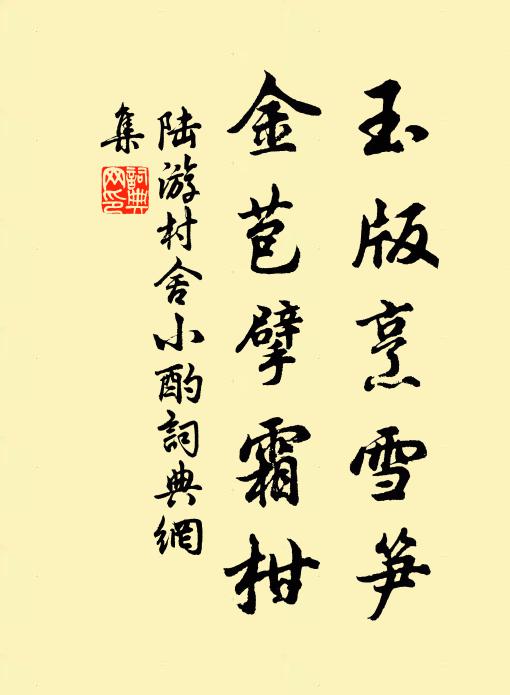 玉版烹雪笋
金苞擘霜柑
陆游村舍小酌詞典網
集
詞典
网印